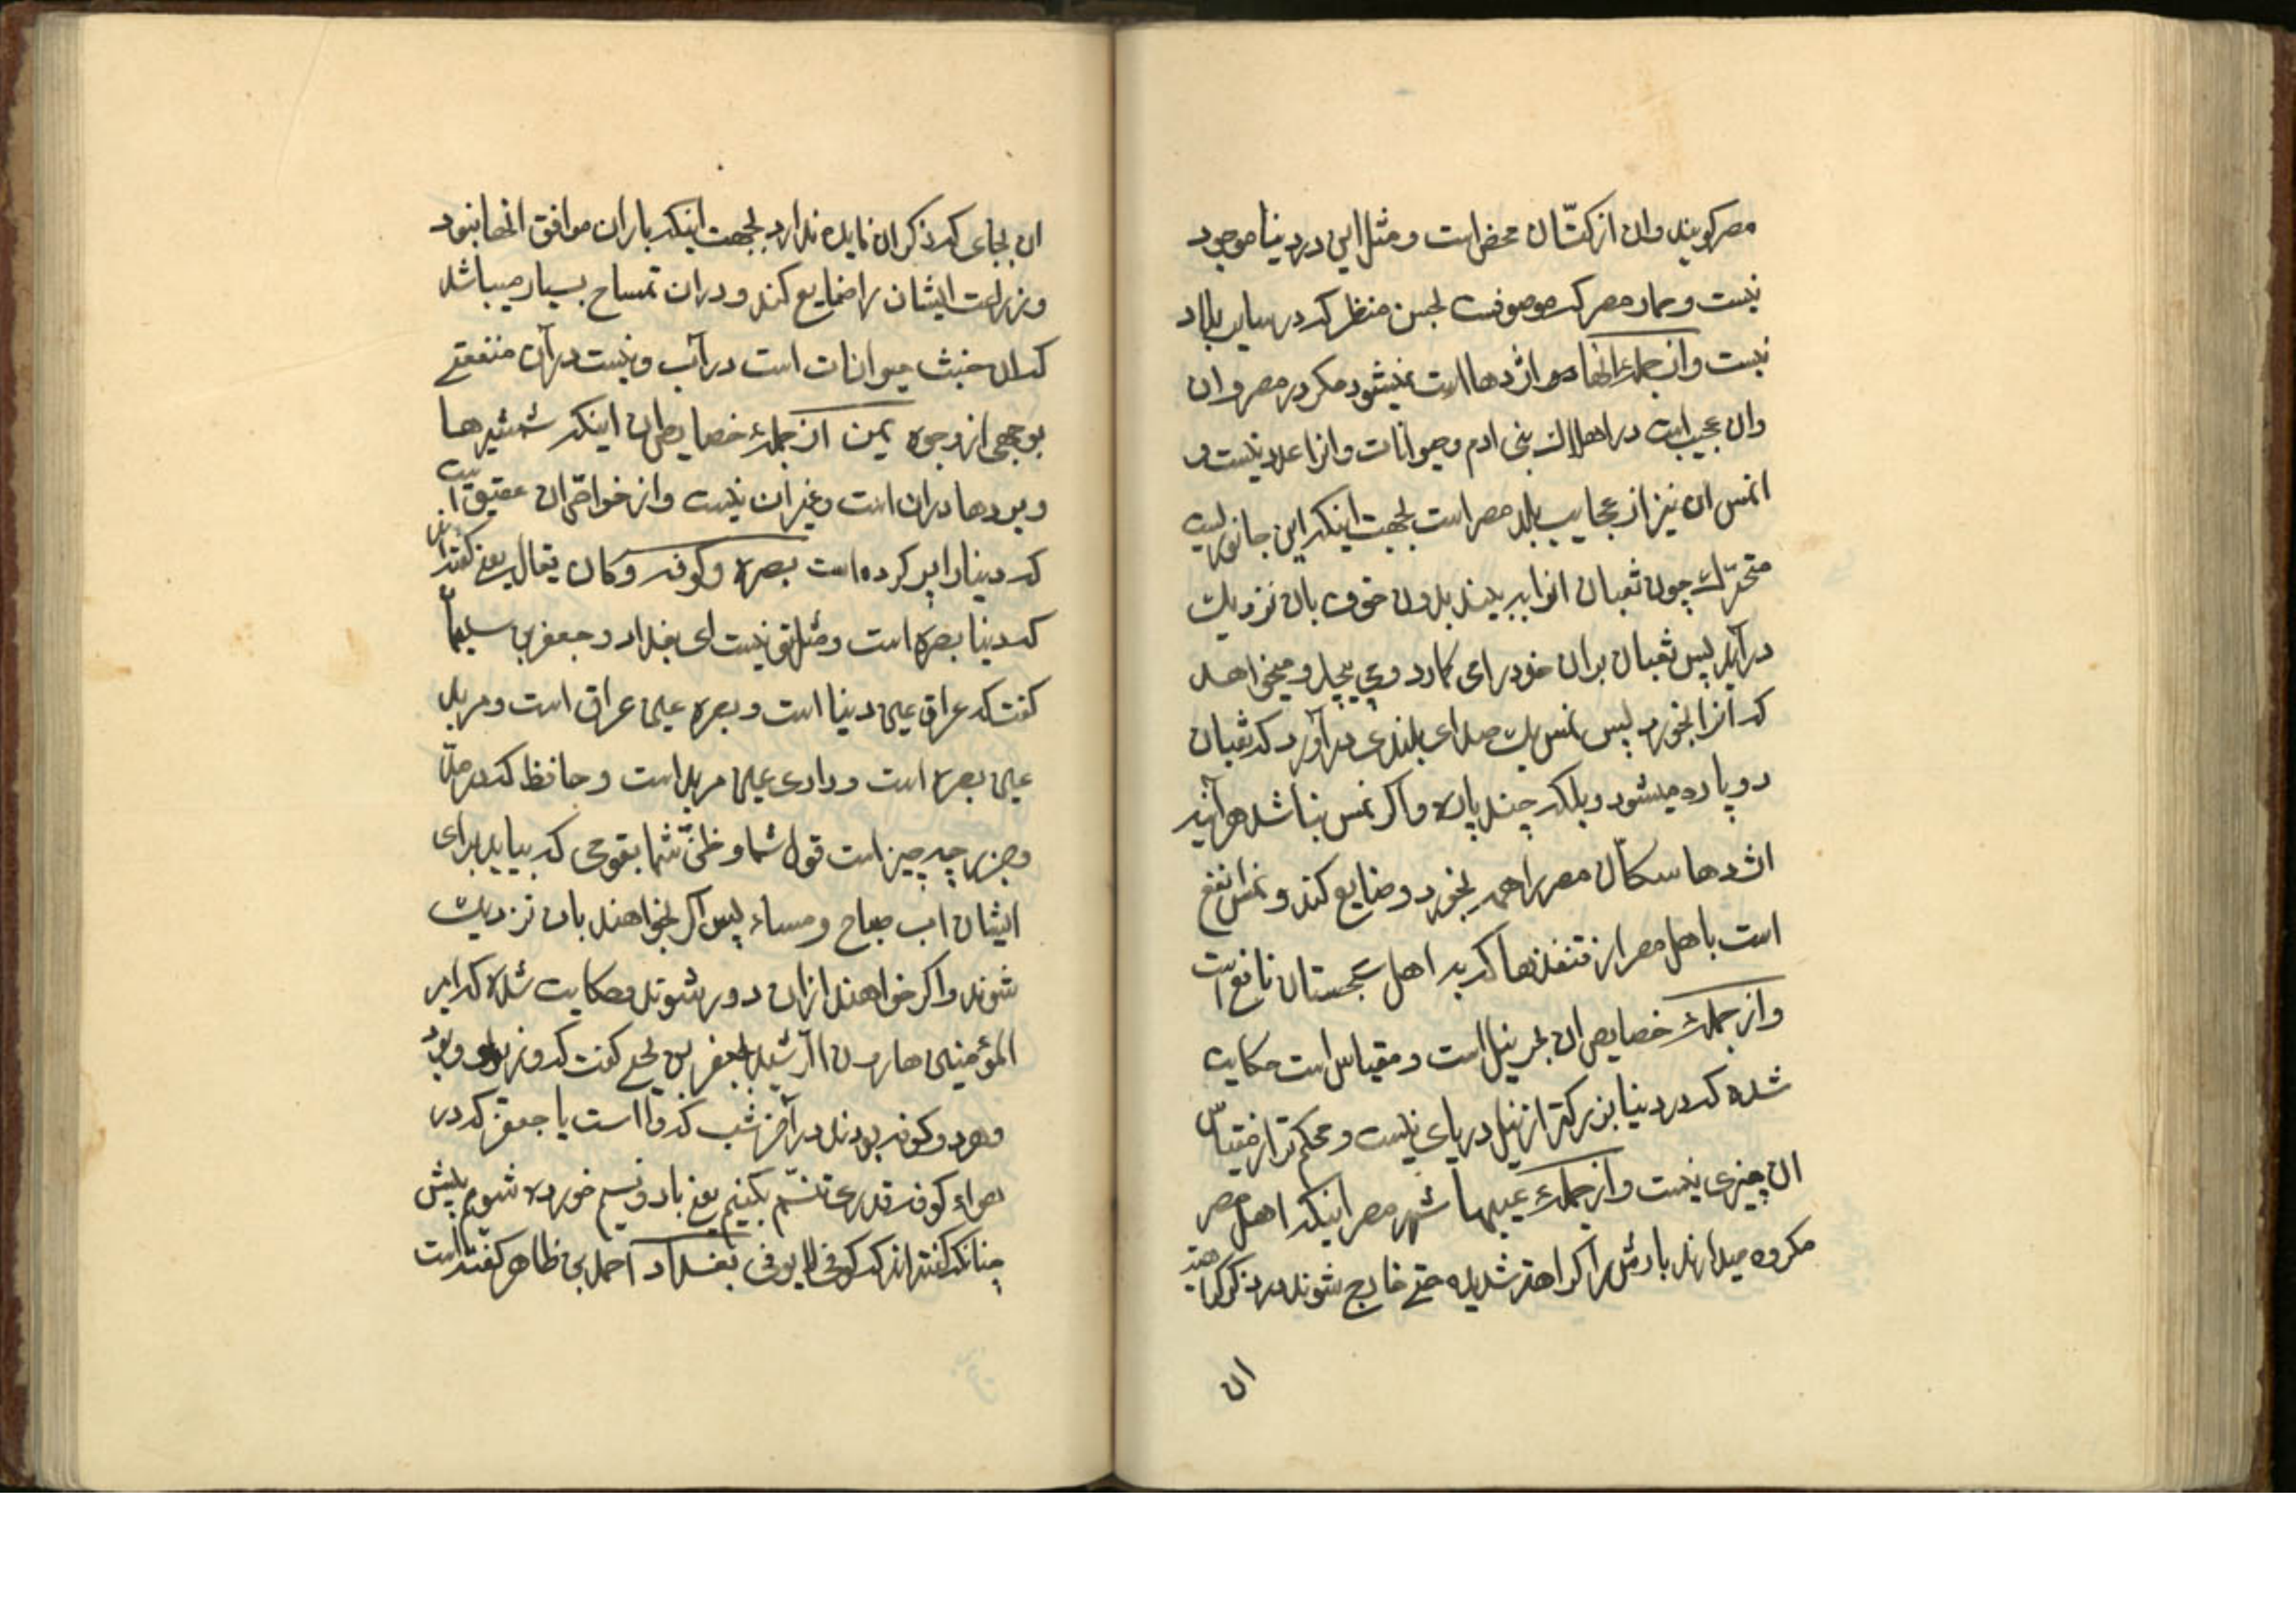 مصر کویند وان از کتّان محض است و مثل این در دنیا موجود
نیست و حمار مصر که موصوفست بحسن منظر که در سایر بلاد
نیست وازجملهٔ انها اژدها است نمیشود مکر در مصر وان
وان عجیب است در اهلاک بنی ادم وحیوانات وانرا عدد نیست و
نمس ان نیز از عجایب بلد مصر است بجهت اینکه این جانوریست
متحرّک چون ثعبان انرا ببیند بدون خوف بان نزدیک
درآید پس ثعبان بران خود را می کمارد و می پیچد و میخواهد
که انرا بخورد پس نمس یک صدای بلندی درآورد که ثعبان
دو پاره میشود و بلکه چند پاره واکر نمس نباشد هرآینه
اژدها سکّان مصر را همه بخورد و ضایع کند و نمس انفع
است باهل مصر از قنفذها که به اهل سجستان نافع است
وازجملهٔ خصایص ان بحر نیل است و مقیاس است حکایت
شده که در دنیا بزرکتر از نیل دریای نیست و محکم تر از مقیاس
ان چیزی نیست وازجملهٔ عیبها شهر مصر اینکه اهل مصر
مکروه میدارند بارش را کراهة شدیده حتی خارج شوند در ذکر کراهتهٔ
ان
ان بجای که ذکر ان فایده ندارد بجهت اینکه باران موافق انها نبود
وزراعت ایشان را ضایع کند و دران تمساح بسیار میباشد
که ان خبث حیوانات است در آب و نیست در آن منفعتی
بوجهی از وجوه یمن ازجملهٔ خصایص ان اینکه شمشیرها
و بردها دران است و غیر ان نیست و از خواصّ ان عقیق است
که دنیا را پر کرده است بصره و کوفه و کان یقال یعنی کفته اند
که دنیا بصره است و مثل تو نیست ای بغداد و جعفر بن سلیمان
کفت که عراق عین دنیا است و بصره عین عراق است و مربد
عین بصره است و داری عین مربد است و حافظ کند
چه چیز است قول شما و ظنّ شما بقومی که بیاید برای
ایشان اب صباح ومساء پس اکر بخواهند بان نزدیک
شوند واکر خواهند ازان دور شوند و حکایت شده که امیر
المؤمنین هارون الرّشید بجعفر بن یحیی کفت که
و کوفه بودند در آخر شب کذ وا است یا جعفر که در
هواء کوفه قدری تنسّم بکنیم یعنی باد و نسیم خورده شویم پیش
چنانکه کفته اند که کوفی لا یوفی بغداد احمد بن طاهر کفته است